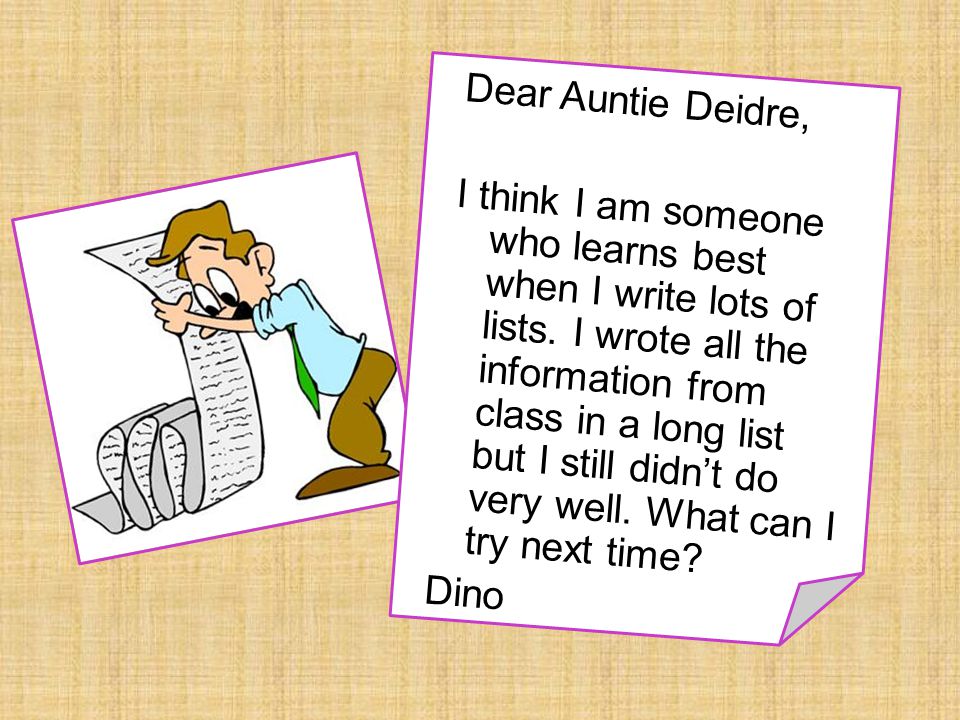 Dear Auntie Deidre,
I think I am someone
who learns best
when I write lots of
lists. I wrote all the
information from
class in a long list
but I still didn’t do
very well. What can I
try next time?
Dino